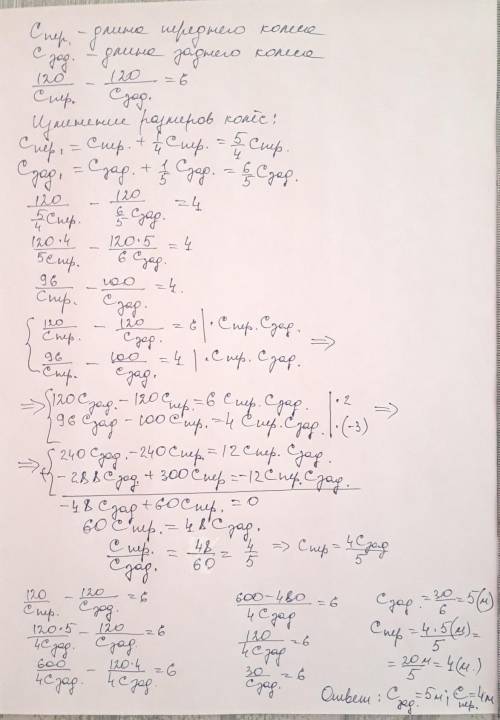 Спер. - длина переднего колеса
Сзад. - длина заднего колеса
120/Спр. - 120/Сзад. = 6
Изменение размеров колёс:
Спер₁ = Спр. + 1/4 Спр. = 5/4 Спр.
Сзад₁ = Сзад. + 1/5 Сзад. = 6/5 Сзад.
120/(5/4 Спр.) - 120/(6/5 Сзад.) = 4
120·4/5Спр. - 120·5/6Сзад. = 4
96/Спр. - 100/Сзад. = 4.
{ 120/Спр. - 120/Сзад. = 6 | · Спр. Сзад. =>
96/Спр. - 100/Сзад. = 4 | · Спр. Сзад.
=> { 120Сзад. - 120Спр. = 6 Спр. Сзад. | ·2 =>
96Сзад - 100Спр. = 4 Спр. Сзад. | ·(-3)
=> +{ 240Сзад. - 240Спр. = 12Спр. Сзад.
-288Сзад. + 300Спр = -12Спр. Сзад.
-48Сзад + 60Спр. = 0
60Спр. = 48Сзад.
Спр./Сзад. = 48/60 = 4/5 => Спр = 4Сзад/5
120/Спр. - 120/Сзад. = 6
120·5/4Сзад. - 120/Сзад. = 6
600/4Сзад. - 120·4/4Сзад. = 6
600-480/4Сзад. = 6
120/4Сзад. = 6
30/Сзад. = 6
Сзад. = 30/6 = 5(м)
Спер = 4·5(м)/5 =
= 20м/5 = 4(м.)
Ответ: Сзад. = 5м; Спр. = 4м